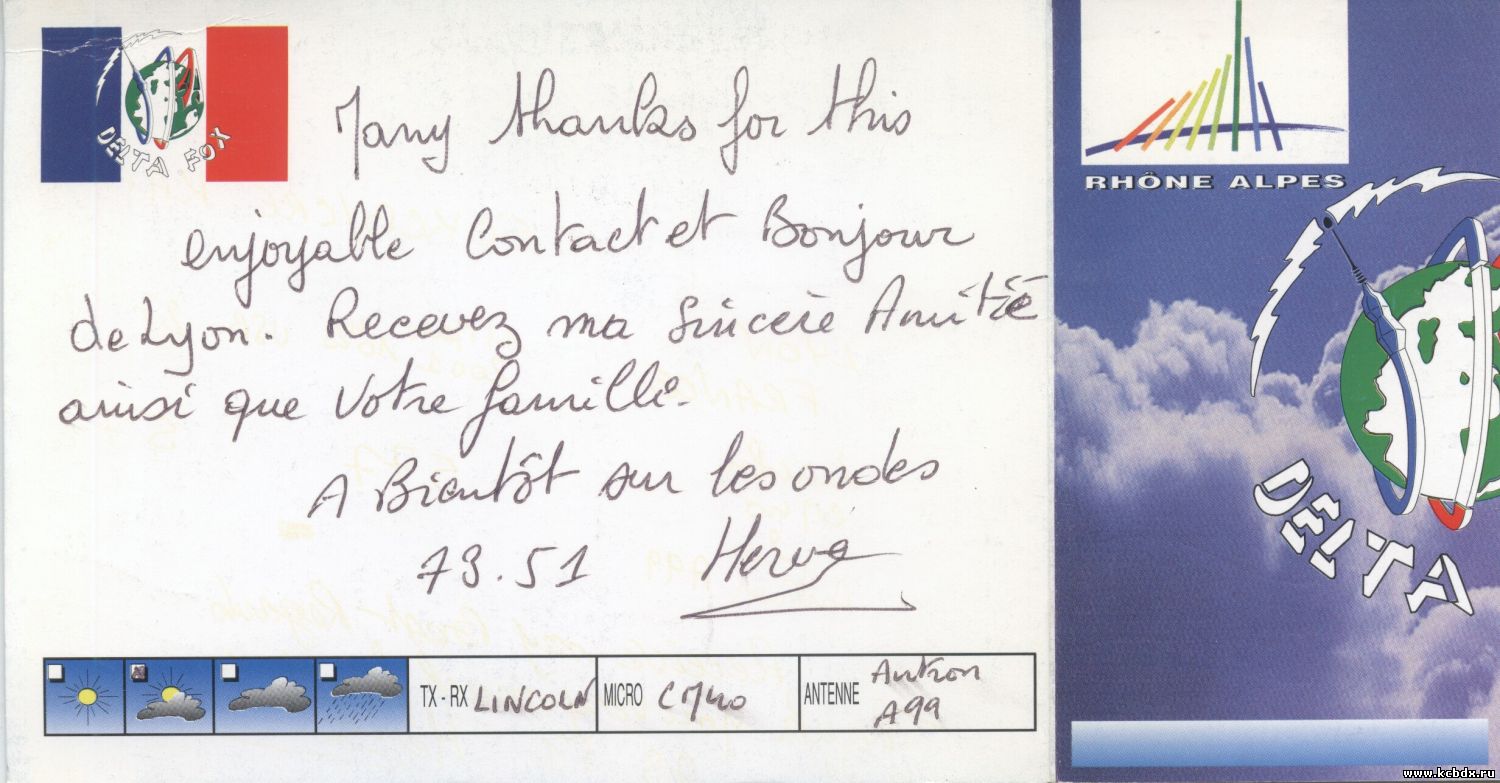 DELTA FOX
Many thanks for this
enjoyable Contact et Bonjour
de Lyon. Recevez ma Sincère Amitié
ainsi que votre famille.
A Bientôt sur les ondes
73.51 Hervé
TX - RX LINCOLN MICRO CM40 ANTENNE Antron
A99
RHÔNE ALPES
DELTA
www.kcbdx.ru